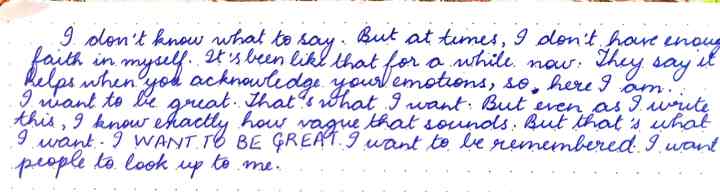 I don't know what to say. But at times, I don't have enoug
faith in myself. It's been like that for a while now. They say it
helps when you acknowledge your emotions, so, here I am..
I want to be great. That's what I want. But even as I write
this, I know exactly how vague that sounds. But that's what
I want. I WANT TO BE GREAT. I want to be remembered. I want
people to look up to me.